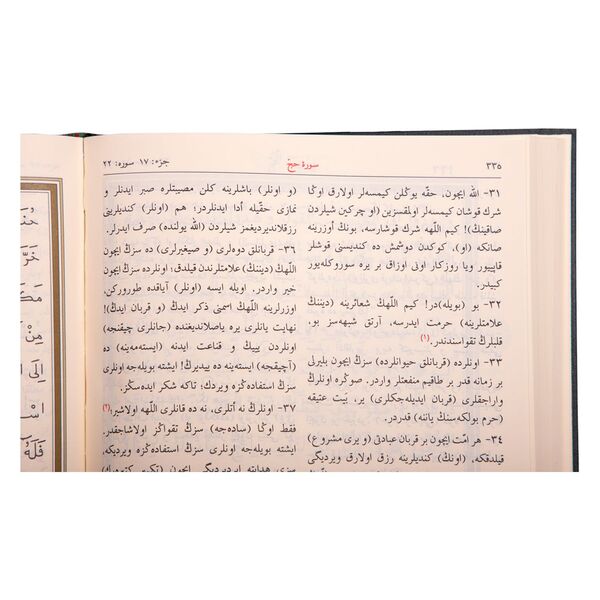 ٣٣٥
سورۀ حج
جزء: ١٧ سوره: ٢٢
٣١- الله ايچون، حقّه يوڭلن كيمسه‌لر اولارق اوڭا
شرك قوشان كيمسه‌لر اولمقسزين (او چركين شيلردن
صاقينڭ)! كيم اللّهه شرك قوشارسه، بونڭ أوزرينه
صانكه (او)، كوكدن دوشمش ده كنديسنى قوشلر
قاپييور ويا روزكار اونى اوزاق بر يره سوروكله‌يور
كبيدر.
٣٢- بو (بويله)در! كيم اللّهڭ شعائرينه (ديننڭ
علامتلرينه) حرمت ايدرسه، آرتق شبهه‌سز بو،
قلبلرڭ تقواسندندر. (١)
٣٣- اونلرده (قربانلق حيوانلرده) سزڭ ايچون بليرلى
بر زمانه قدر بر طاقيم منفعتلر واردر. صوڭره اونلرڭ
واراجقلرى (قربان ايديله‌جكلرى) ير، بَيت عتيقه
(حرم يولكه‌سنڭ ياننه) قدردر.
٣٤- هر امّت ايچون بر قربان عبادتى (و يرى مشروع)
قيلدقكه، (اونڭ) كنديلرينه رزق اولارق ويرديگى
(و اونلر) باشلرينه كلن مصيبتلره صبر ايدنلر و
نمازى حقّيله أدا ايدنلردر؛ هم (اونلر) كنديلرينى
رزقلانديرديغمز شيلردن (الله يولنده) صرف ايدرلر.
٣٦- قربانلق دوه‌لرى (و صيغيرلرى) ده سزڭ ايچون
اللّهڭ (ديننڭ) علامتلرندن قيلدق؛ اونلرده سزڭ ايچون
خير واردر. اويله ايسه (اونلر) آياقده طورورکن،
اوزرلرينه اللّهڭ اسمنى ذكر ايدڭ (و قربان ايدڭ)!
نهايت يانلرى يره ياصلانديغنده (جانلرى چيقنجه)
اونلردن ييڭ و قناعت ايدنه (ايسته‌مه‌ينه) ده
(آچيقجه) ايسته‌ينه ده ييديرڭ! ايشته بويله‌جه اونلرى
سزڭ استفاده‌ڭزه ويردك؛ تاكه شكر ايده‌سڭز.
٣٧- اونلرڭ نه أتلرى، نه ده قانلرى اللّهه اولاشير، (٢)
فقط اوڭا (ساده‌جه) سزڭ تقواڭز اولاشاجقدر.
ايشته بويله‌جه اونلرى سزڭ استفاده‌ڭزه ويرديكه،
سزى هدايته ايرديرديگى ايچون (تكبير كتيره‌رك)